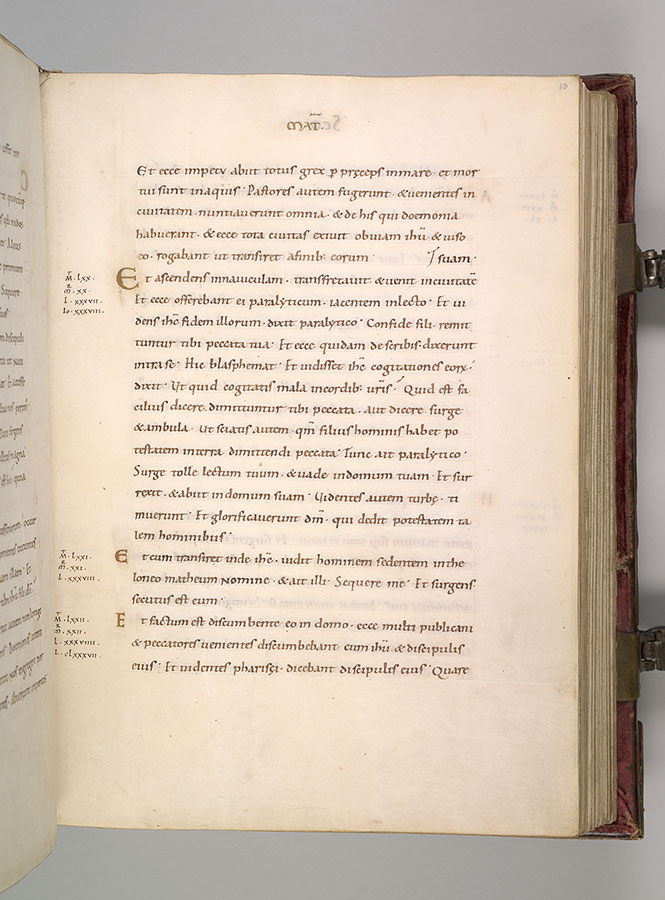 10
MAT̄
Et ecce impetu abiit totus grex p̱ p̱ręceps inmare · et mor
tui sunt inaquis · Pastores autem fugerunt · & uenientes in
ciuitatem · nuntiauerunt omnia · & de his qui doemonia
habuerant · & ecce tota ciuitas exiuit obuiam ihū & uiso
eo · rogabant ut transiret afinib: eorum · suam ·
M̄ · LXX ·
m̄R · XX ·
L · XXXVII ·
Io · XXXVIII ·
Et ascendens innauiculam · transfretauit & uenit inciuitatē
Et ecce offerebant ei paralyticum · iacentem inlecto · Et ui
dens ihc̄ fidem illorum · dixit paralytico · Confide fili · remit
tuntur tibi peccata tua · Et ecce quidam describis dixerunt
intrase · Hic blasphemat · Et uidisset ihc̄ cogitationes eorꝝ ·
dixit · Ut quid cogitatis mala incordib: uris̄ · Quid est fa
cilius dicere dimittuntur tibi peccata · aut dicere surge
& ambula · Ut sciatis autem · qm̄ filius hominis habet po
testatem interra dimittendi peccata · Tunc ait paralytico ·
Surge tolle lectum tuum · & uade indomum tuam · Et sur
rexit · & abiit indomum suam · Uidentes autem turbę · ti
muerunt · Et glorificauerunt dm̄ · qui dedit potestatem ta
lem hominibus ·
M̄ · LXXI ·
m̄R · XXI ·
L · XXXVIII ·
Et cum transiret inde ihc̄ · uidit hominem sedentem inthe
loneo matheum nomine · & ait illi · Sequere me · Et surgens
secutus est eum ·
M̄ · LXXII ·
m̄R · XXII ·
L · XXXVIIII ·
L · CLXXXVII ·
Et factum est discumbente eo in domo · ecce multi publicani
& peccatores uenientes discumbebant cum ihū & discipulis
eius · Et uidentes pharisęi · dicebant discipulis eius · Quare